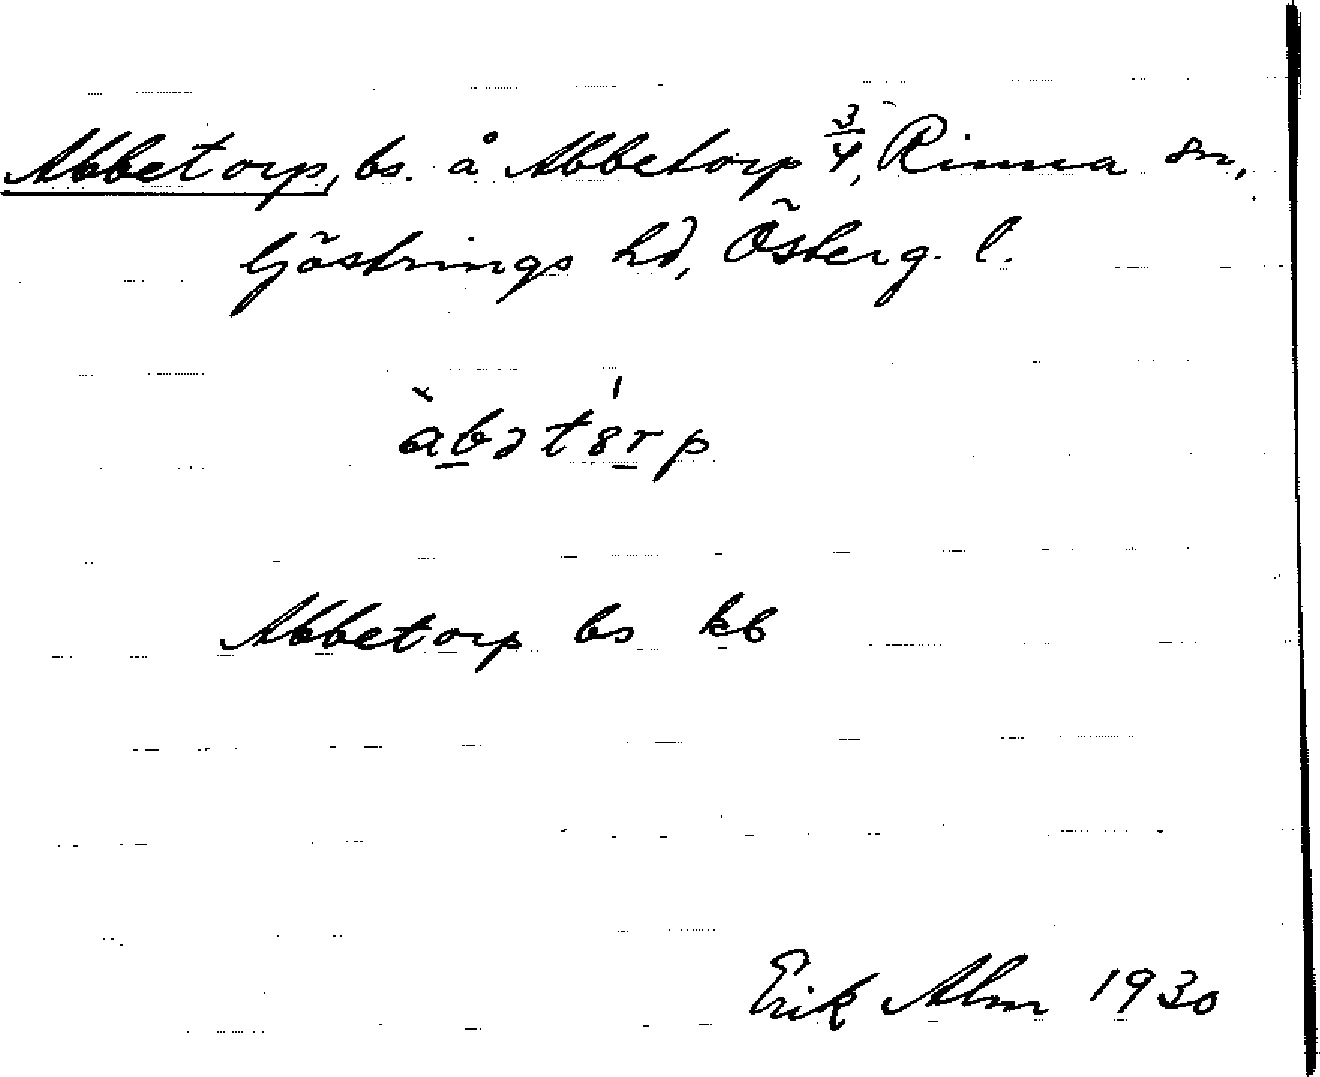 Abbetorp, bs. å Abbetorp 3/4, Rinna sn,
Göstrings hd, Österg. l.
àbət8́rp
Abbetorp bs kb
Erik Alm 1930